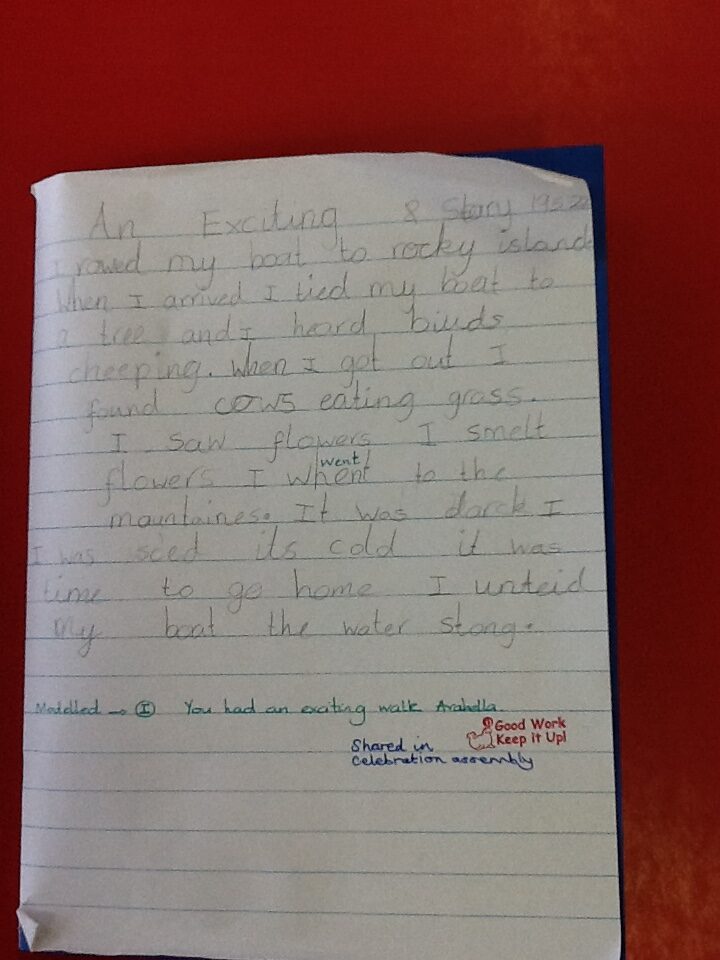 An Exciting & Story 19.5.22
I rowed my boat to rocky island
When I arrived I tied my boat to
a tree and I heard biuds
cheeping. When I got out I
found cows eating grass.
I saw flowers I smelt
went
flowers I whent to the
mauntaines. It was darck I
I was sced its cold it was
time to go home I unteid
My boat the water stong.
Modelled → I You had an exciting walk Arabella.
Good Work
Keep it Up!
Shared in
Celebration assembly